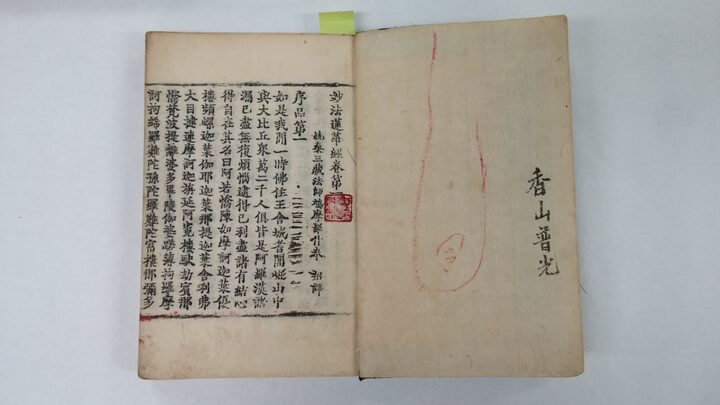 香山普光
妙法蓮華經卷第一
姚秦三藏法師鳩摩羅什奉 詔譯
序品第一
如是我聞一時佛住王舍城耆闍崛山中
與大比丘衆萬二千人俱皆是阿羅漢諸
漏已盡無復煩惱逮得已利盡諸有結心
得自在其名曰阿若憍陳如摩訶迦葉優
樓頻螺迦葉伽耶迦葉那提迦葉舍利弗
大目揵連摩訶迦旃延阿㝹樓馱劫賓那
憍梵波提離婆多畢陵伽婆蹉薄拘羅摩
訶拘絺羅難陀孫陀羅難陀富樓那彌多